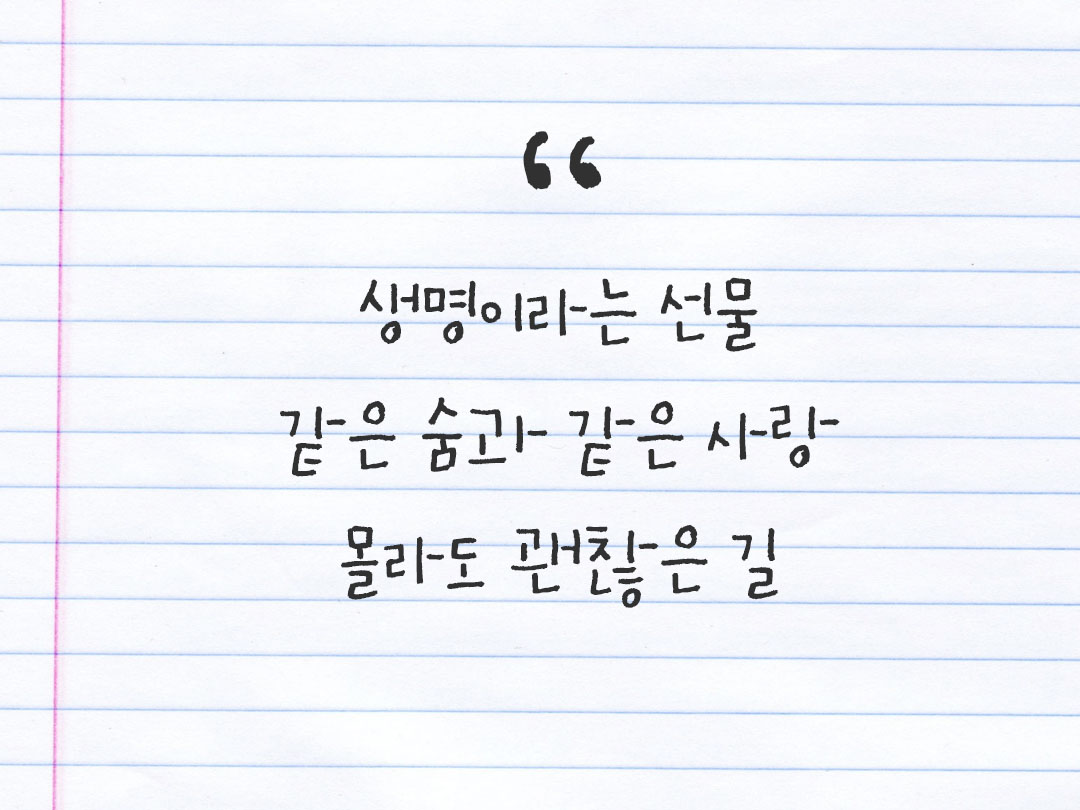 “
생명이라는 선물
같은 숨과 같은 사랑
몰라도 괜찮은 길